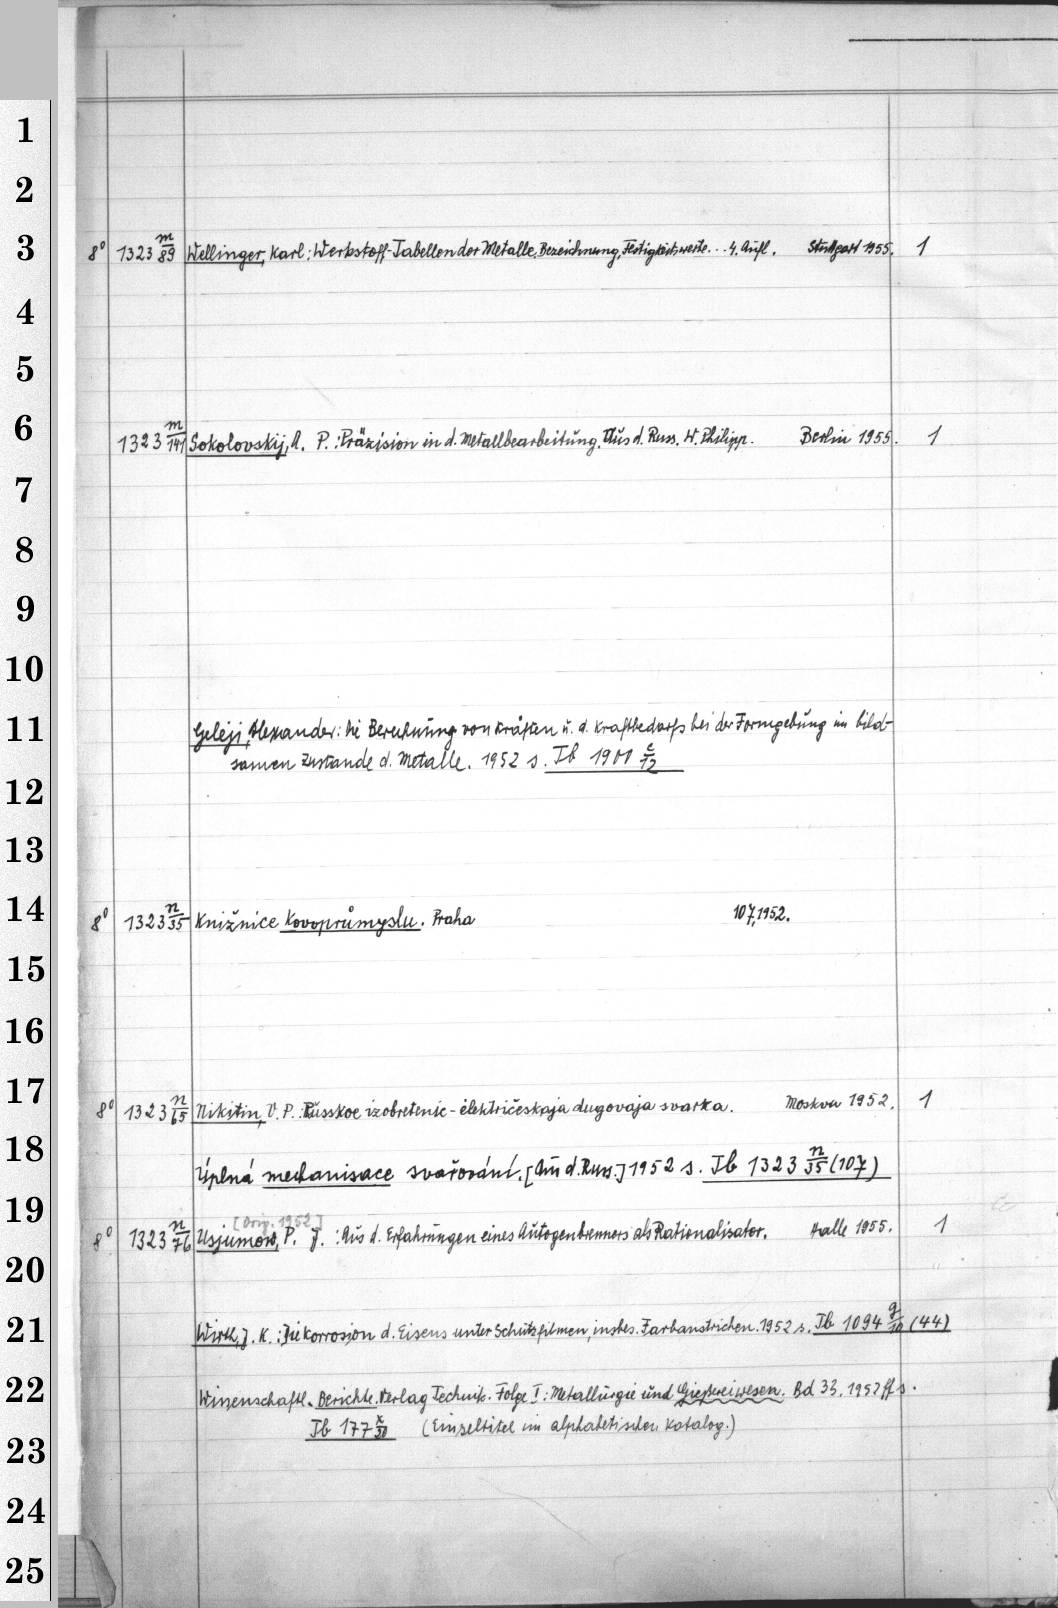 1
2
8° 1323 m/89 Wellinger, Karl: Werkstoff-Tabellen der Metalle. Bezeichnung, Festigkeitswerte... 4. Aufl. Stuttgart 1955. 1
3
4
5
6
1323 m/141 Sokolovskij, A. P.: Präzision in d. Metallbearbeitung. Aus d. Russ. W. Philipp. Berlin 1955. 1
7
8
9
10
11
Geleji, Alexander: Die Berechnung von Kräften u. d. Kraftbedarfs bei der Formgebung im bild-
samen Zustande d. Metalle. 1952 s. Tb 1900 c/12
12
13
14
8° 1323 n/35 Knižnice Kovoprůmyslu. Praha 107, 1952.
15
16
17
8° 1323 n/65 Nikitin, V. P.: Russkoe izobretenie - ėlektričeskaja dugovaja svarka. Moskva 1952. 1
18
Úplná mechanisace svařování. [Aus d. Russ.] 1952 s. Tb 1323 n/35 (107)
19
[Orig. 1952]
8° 1323 n/76 Usjumow, P. J.: Aus d. Erfahrungen eines Autogenbrenners als Rationalisator. Halle 1955. 1
20
21
Wirth, J. K.: Die Korrosion d. Eisens unter Schutzfilmen, insbes. Farbanstrichen. 1952 s. Tb 1094 g/10 (44)
22
Wissenschaftl. Berichte. Verlag Technik. Folge I: Metallurgie und Gießereiwesen. Bd 33. 1952 ff s.
Tb 177 x/30 (Einzeltitel im alphabetischen Katalog.)
23
24
25